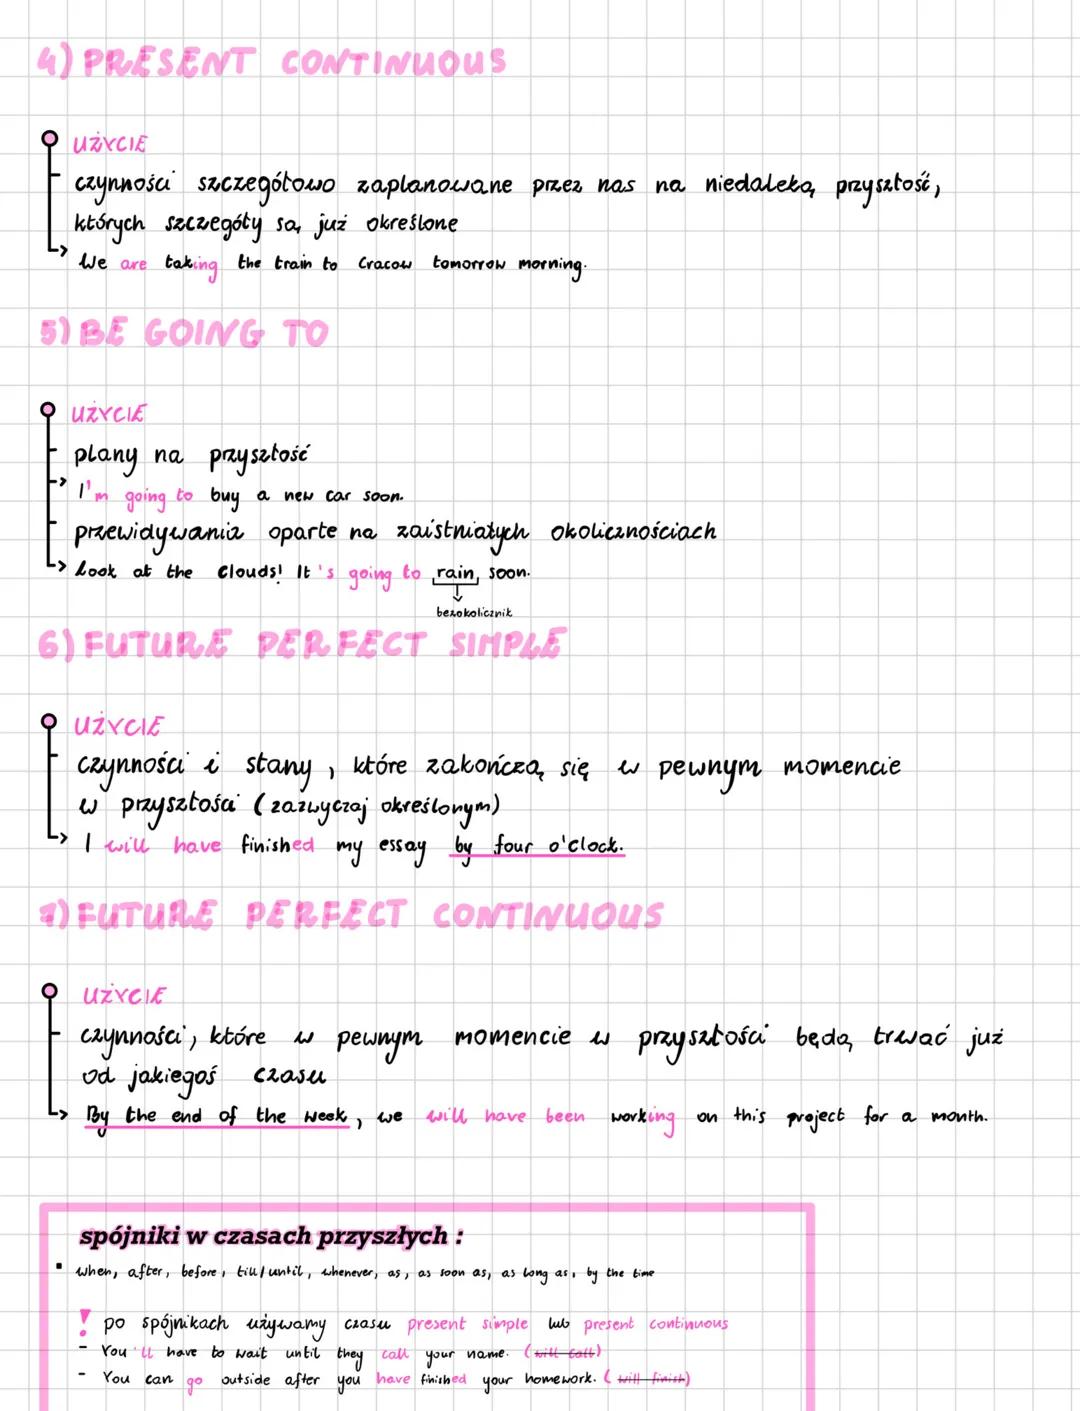 4) PRESENT CONTINUOUS
UŻYCIE
czynności szczegółowo zaplanowane przez nas na niedaleką przyszłość,
których szczegóły są już określone
We are taking the train to Cracow tomorrow morning.
5) BE GOING TO
UŻYCIE
plany na przyszłość
I'm going to buy a new car soon.
przewidywania oparte na zaistniałych okolicznościach
Look at the clouds! It's going to rain soon.
bezokolicznik
6) FUTURE PERFECT SIMPLE
UŻYCIE
czynności i stany, które zakończą się w pewnym momencie
w przyszłości (zazwyczaj określonym)
I will have finished my essay by four o'clock.
7) FUTURE PERFECT CONTINUOUS
UŻYCIE
czynności, które w pewnym momencie w przyszłości będą trwać już
od jakiegoś czasu
By the end of the week, we will have been working on this project for a month.
spójniki w czasach przyszłych :
when, after, before, till/until, whenever, as, as soon as, as long as, by the time
! po spójnikach używamy czasu present simple lub present continuous
- You'll have to wait until they call your name. (will call)
- You can go outside after you have finished your homework. (will finish)